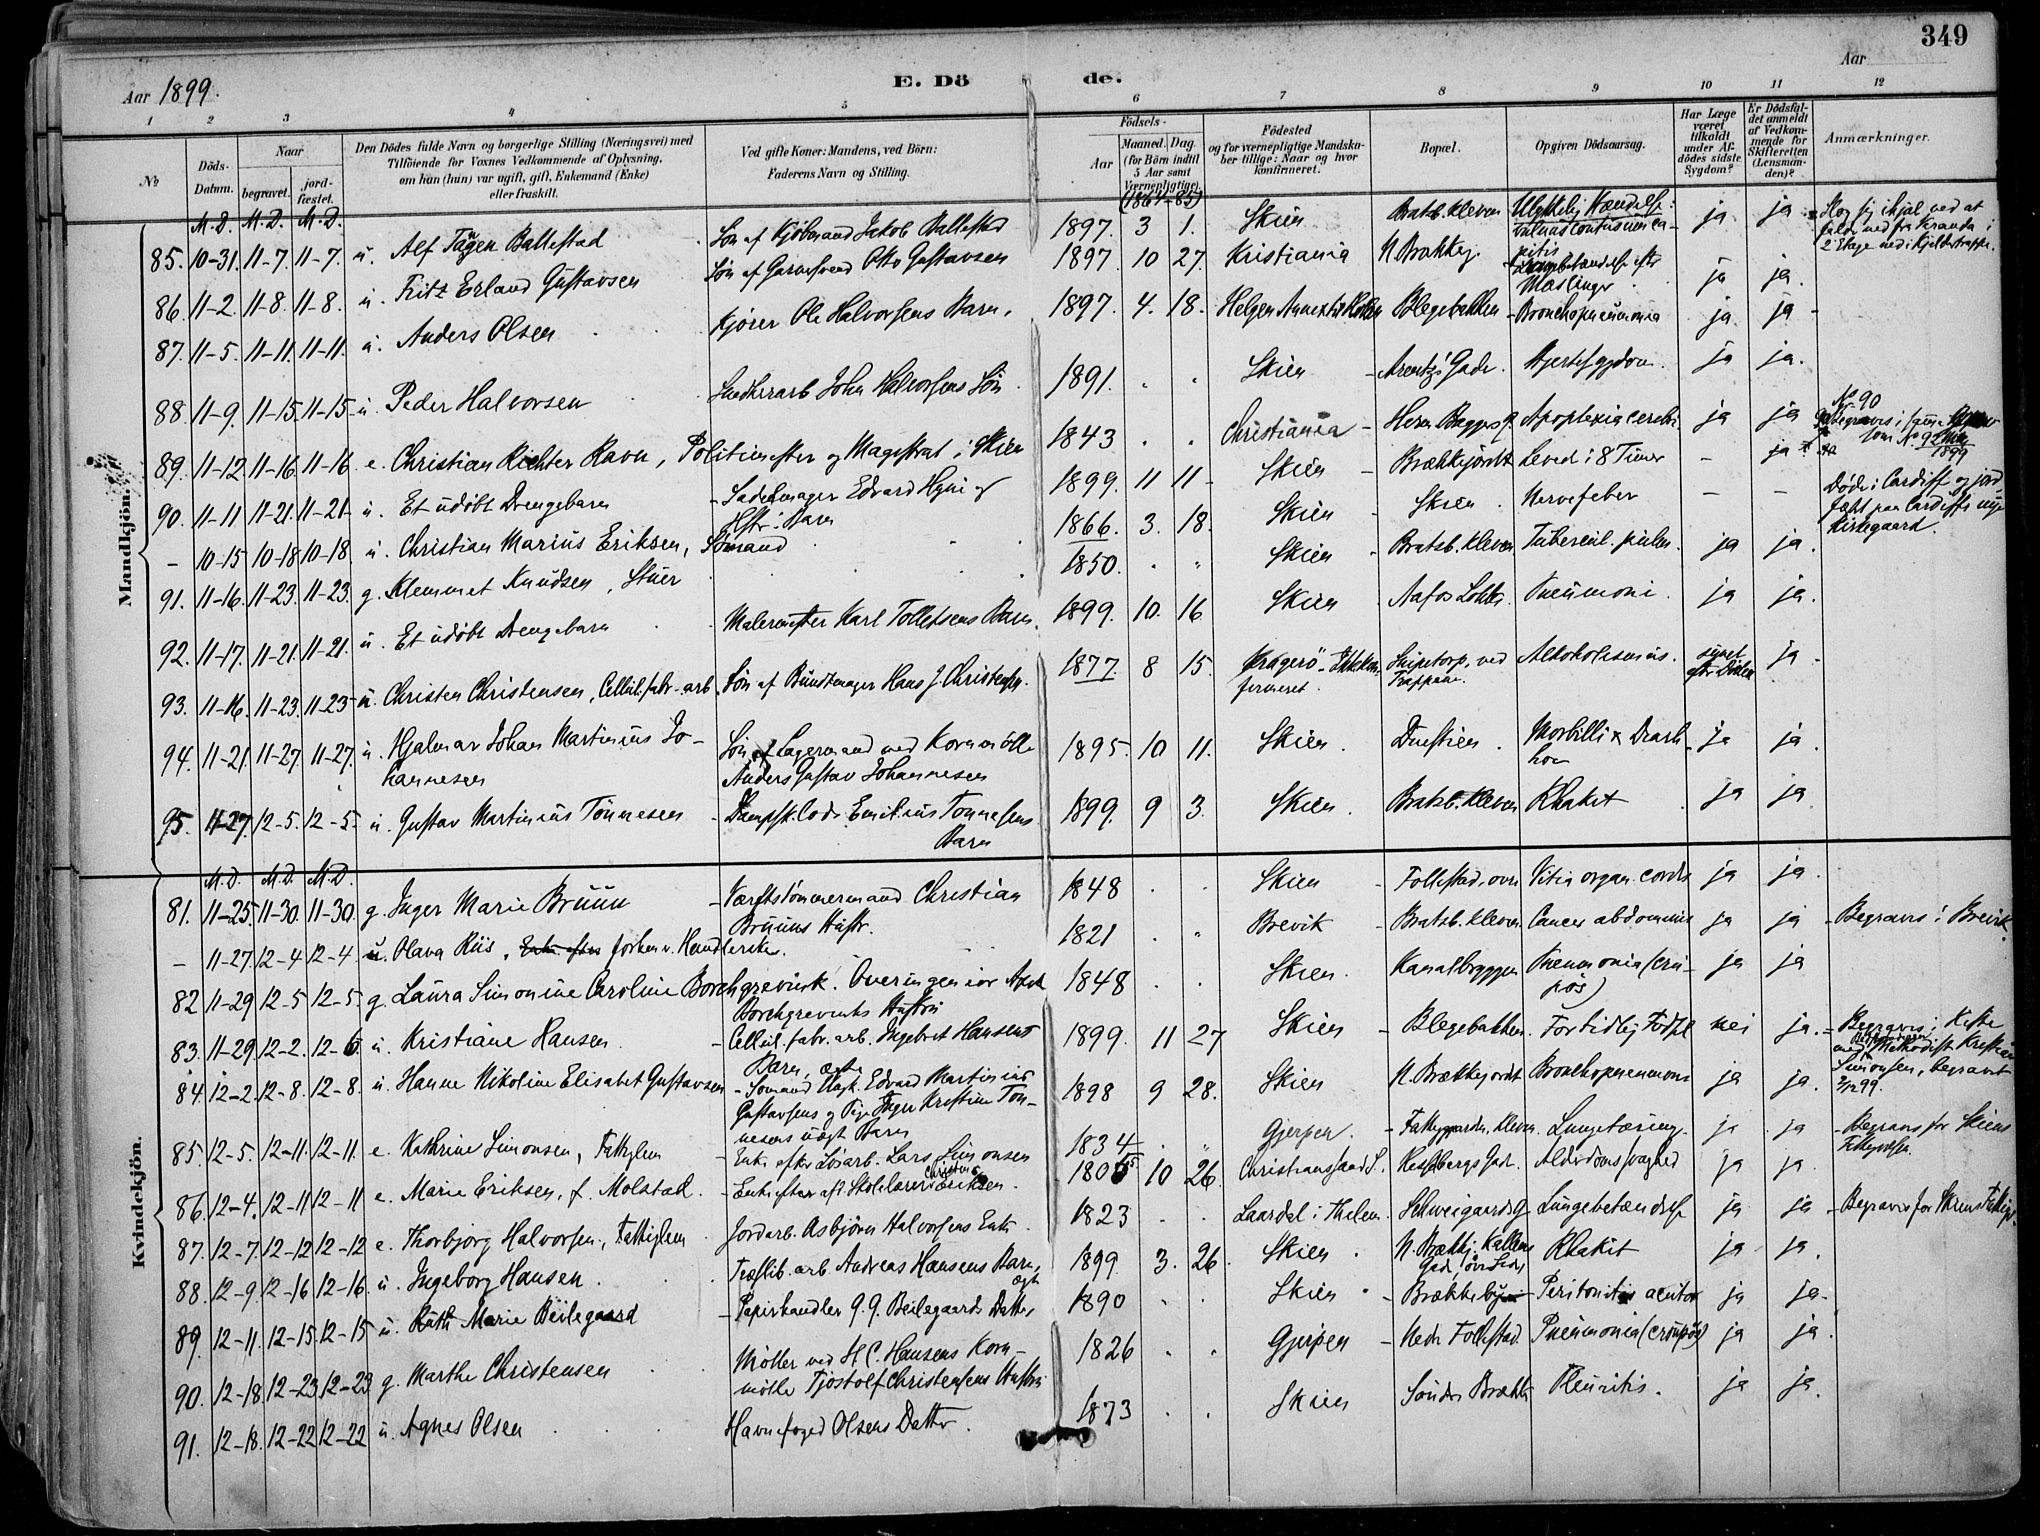 349
Aar 1899.
E. Döde.
Aar
1 2 3 4 5 6 7 8 9 10 11 12
№
Döds-Datum.
Naar begravet. jordfæstet.
Den Dödes fulde Navn og borgerlige Stilling (Næringsvei) med Tilföiende for Voxnes Vedkommende af Oplysning, om han (hun) var ugift, gift, Enkemand (Enke) eller fraskilt.
Ved gifte Koner: Mandens, ved Börn: Faderens Navn og Stilling.
Födsels-
Aar
Maaned. Dag (for Börn indtil 5 Aar samt Værnepligtige).
Födested og for værnepligtige Mandskaber tillige: Naar og hvor konfirmeret.
Bopæl.
Opgiven Dödsaarsag.
Har Læge været tilkaldt under Afdödes sidste Sygdom?
Er Dödsfaldet anmeldt af Vedkommende for Skifteretten (Lensmanden)?
Anmærkninger.
Mandkjön.
M. D. M. D. M. D.
85. 10-31. 11-7. 11-7. u. Alf Tågen Ballestad Søn af Kjöbmand Jakob Ballestad 1897. 3 1. Skien Bratsb. Kleven Ulykkelig Hændelse: vulnus contusum capitis ja ja Slog sig ihjel ved at falde ned fra Veranda i 2 Etage ned i Kjeldertrappe.
86. 11-2. 11-8. 11-8. u. Fritz Erland Gustavsen Søn af Garversvend Otto Gustavsen 1897. 10 27. Kristiania N. Brækkeg. Lungebetændelse efter Mæslinger ja ja.
87. 11-5. 11-11. 11-11. u. Anders Olsen Kjører Ole Halvorsens Barn. 1897. 4. 18. Helgen Annex til Hollen Blegebakken Bronchopneumonia ja ja
88 11-9. 11-15. 11-15 u. Peder Halvorsen Snedkerarb John Halvorsens Søn 1891. Skien Arentz's Gade. Hjertesygdom. ja ja.
89. 11-12. 11-16. 11-16. e. Christian Richter Ravn, Politimester og Magistrat i Skien 1843 Christiania Herm Baggesg. Apoplexia cerebri ja ja
90. 11-11 11-21. 11-21 u. Et udöbt Drengebarn Sadelmager Edvard Hgni Hstr: Barn 1899. 11 11 Skien Brækkejordet Levede i 8 Timer - ja No 90 begraves i samme som No 92 1899
- 10-15 10-18 10-18. u. Christian Marius Eriksen, Sömand 1866. 3. 18. Skien Skien. Nervefeber - - Döde i Cardiff og jordfæst paa Cardiffs nye Kirkegaard.
91. 11-16. 11-23. 11-23. g. Klemmet Knudsen, Stuer 1850. Skien Bratsb. Kleven Tubercul. pulm. ja ja.
92. 11-17. 11-21. 11-21. u. Et udöbt Drengebarn Malermester Karl Tollefsens Barn. 1899. 10. 16. Skien Aafos Lökke Pneumoni. ja ja.
93. 11-16. 11-23. 11-23 u. Christen Christensen, Cellul. fabr. arb. Søn af Bundtmager Hans J. Christensen. 1877. 8 15. Kragerö. Ikke konfirmeret. Snipetorp, ved Trappene. Alkoholismus. synet efter Döden ja.
94. 11-21. 11-27. 11-27. u. Hjalmar Johan Martinius Johannesen Søn af Lagermand ved Kornmölle Anders Gustav Johannesen 1895. 10 11. Skien. Duestien. Morbilli & Diarrhoe ja ja.
95. 11-27. 12-5. 12-5. u. Gustav Martinius Tönnesen Dampsk. lods Emil.ius Tönnesens Barn 1899. 9 3. Skien. Bratsb. Kleven Rhakit ja ja
Kvindekjön.
M. D. M. D. M. D.
81. 11-25. 11-30. 11-30. g. Inger Marie Bruun Værftstömmermand Christian Bruuns Hustr. 1848 Skien Follestad, övre Vitia organ. cordis ja ja.
- 11-27 12-4 12-4 u. Olava Riis, forhenv. Handlerske. 1821 Brevik Bratsb. Kleven Cancer abdominis ja ja Begraves i Brevik.
82 11-29 12-5 12-5. g. Laura Simonine Caroline Borchgrevink. Overingeniør Borchgrevinks Hustru 1848 Skien. Kanalbryggen Pneumonia (crupös) ja ja
83. 11-29 12-2. 12-6 u. Kristiane Hansen. Cellul. fabr. arb. Ingebret Hansens Barn, ægte 1899. 11 27 Skien Blegebakken. For tidlig Födsel nei ja. Begraves i Kiste med Methodist Kristian Simonsen, begravet 2/12 99.
84. 12-2. 12-8. 12-8. u. Hanne Nikoline Elisabet Gustavsen Sömand Edvard Martinius Gustavsens og Pige Inger Kristine Tönnesens uægt Barn 1898 9 28. Skien N. Brækkejordet Bronchopneumoni ja ja.
85. 12-5. 12-11. 12-11. e. Kathrine Simonsen, Fattiglem Enke efter Löiarb. Lars Simonsen 1834 Gjerpen. Fattiggarden, Kleven. Lungetæring. ja ja Begraves for Skiens Fattigvæsen.
86. 12-4. 12-11 12-11 e. Marie Eriksen, f. Molstad. Enke efter afd. Skolelærer Christen Eriksen. 1805 10 26. Christianssand S. Kesselbergs Gade. Alderdomssvaghed ja ja.
87. 12-7. 12-12 12-12 e. Thorbjorg Halvorsen, Fattiglem Jordarb. Asbjörn Halvorsens Enke. 1823 Laardal i Thelem. Schweigaardsg. Lungebetændelse ja ja Begraves for Skiens Fattigv.
88. 12-9. 12-16 12-16. u. Ingeborg Hansen. Træslib. arb Andreas Hansens Barn, ægte 1899. 3. 26. Skien. N. Brækkj. Kallens Gade, övre Side. Rhakit ja ja.
89. 12-11. 12-15. 12-15 u. Ruth Marie Beilegaard Papirhandler G. G. Beilegaards Datter 1890 Skien Brækkeby Peritonitis acuta ja ja.
90. 12-18. 12-23. 12-23 g. Marthe Christensen Møller ved H. C. Hansens Kornmølle Tjostolf Christensens Hustru 1826 Gjerpen Nedr Follestad. Pneumonia (crupös) ja ja.
91. 12-18. 12-22 12-22 u. Agnes Olsen Havnefoged Olsens Datter. 1873 Skien Söndre Brække Pleuritis. ja ja.